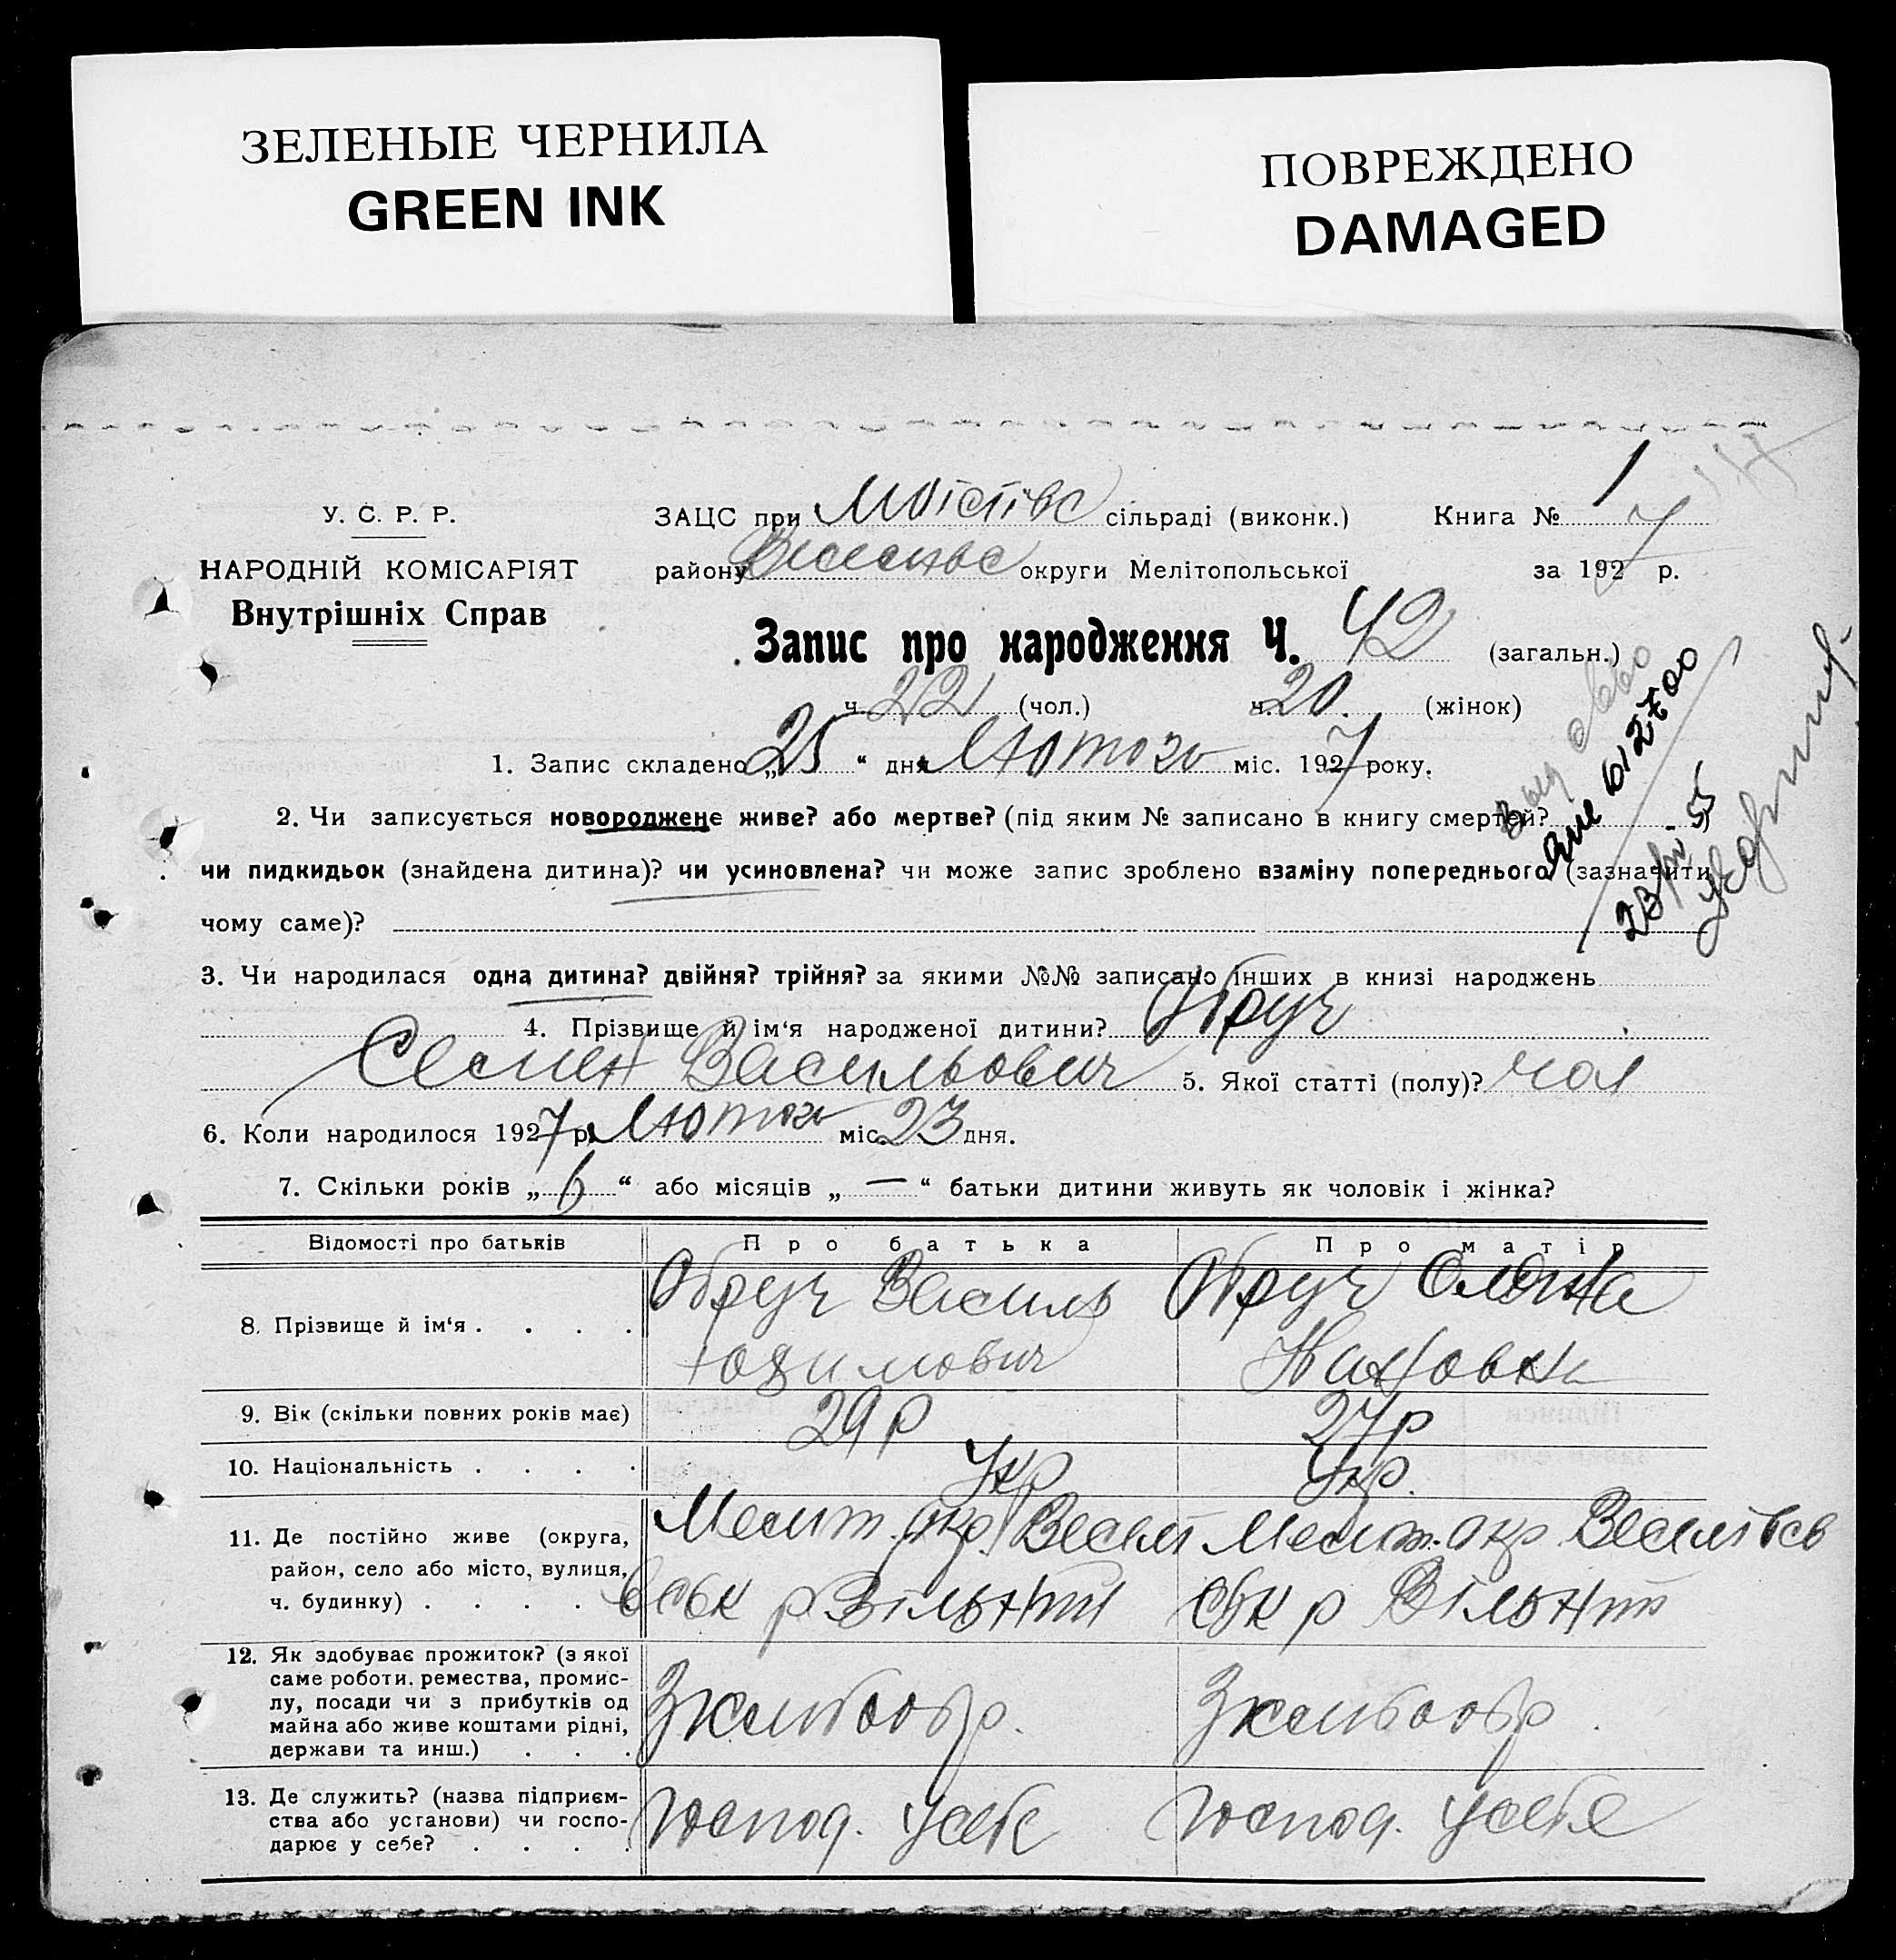 ЗЕЛЕНЫЕ ЧЕРНИЛА
GREEN INK
ПОВРЕЖДЕНО
DAMAGED
У. С. Р. Р.
НАРОДНІЙ КОМІСАРІЯТ
Внутрішніх Справ
ЗАЦС при сільраді (виконк.) Книга № 1
району округи Мелітопольської за 1927 р.
Запис про народження Ч. 42 (загальн.)
ч. 22 (чол.) ч. 20. (жінок)
1. Запис складено „25“ дня Лютого міс. 1927 року.
2. Чи записується новороджене живе? або мертве? (під яким № записано в книгу смертей?
чи пидкидьок (знайдена дитина)? чи усиновлена? чи може запис зроблено взаміну попереднього (зазначити
чому саме)?
3. Чи народилася одна дитина? двійня? трійня? за якими №№ записано інших в книзі народжень
4. Прізвище й ім‘я народженої дитини? Обруч
Семен Васильович 5. Якої статті (полу)? чол
6. Коли народилося 1927 р. Лютого міс. 23 дня.
7. Скільки років „6“ або місяців „—“ батьки дитини живуть як чоловік і жінка?
Відомості про батьків Про батька Про матір
8. Прізвище й ім‘я . . . . Обруч Василь Обруч Олена
9. Вік (скільки повних років має) 29 р 27 р
10. Національність . . . . Укр Укр.
11. Де постійно живе (округа,
район, село або місто, вулиця,
ч. будинку) . . . .
Мелит. окр. Весели Мелит. окр. Веселівсв
ськ р Вільнт ськ р Вільнт
12. Як здобуває прожиток? (з якої
саме роботи, ремества, промис-
лу, посади чи з прибутків од
майна або живе коштами рідні,
держави та инш.) . . .
13. Де служить? (назва підприєм-
ства або установи) чи госпо-
дарює у себе? . . . .
Господ. у себе Господ. у себе